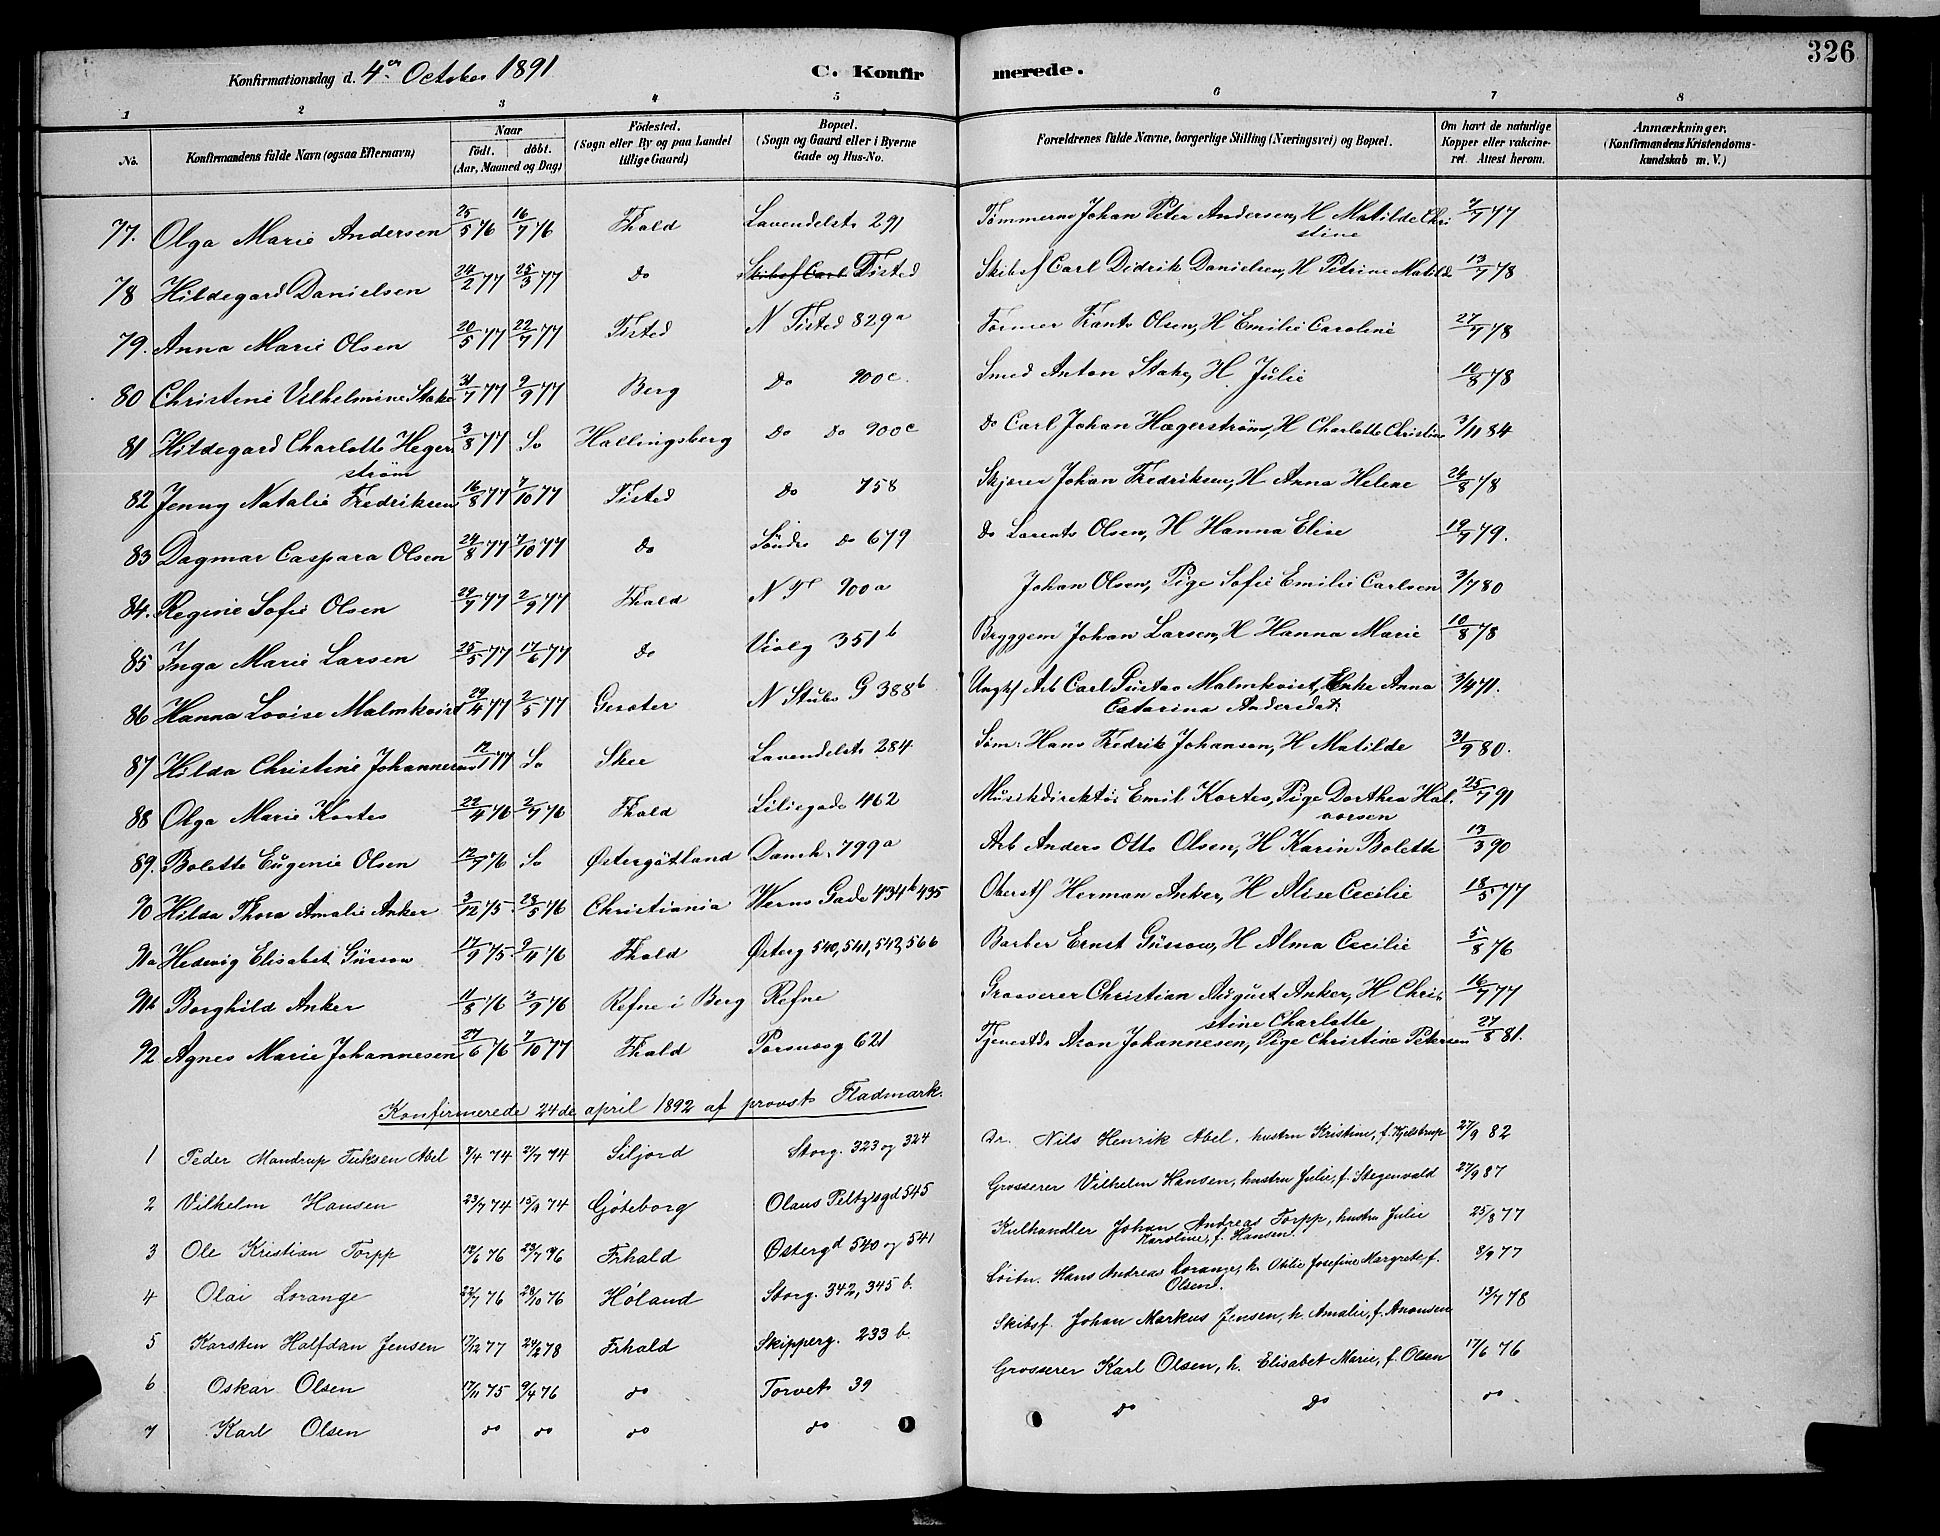 326
Konfirmationsdag d. 4de October 1891 C. Konfirmerede.
1 2 3 4 5 6 7 8
No. Konfirmandens fulde Navn (ogsaa Efternavn) Naar födt. döbt. (Aar, Maaned og Dag) Födested. (Sogn eller By og paa Landet tillige Gaard) Bopæl. (Sogn og Gaard eller i Byerne Gade og Hus-No. Forældrenes fulde Navne, borgerlige Stilling (Næringsvei) og Bopæl. Om havt de naturlige Kopper eller vakcineret. Attest herom. Anmærkninger. (Konfirmandens Kristendomskundskab m. V.)
77. Olga Marie Andersen 25/5 76 16/7 76 Fhald Lavendelstr 291 Tømmerm Johan Peter Andersen, H Matilde Christine 7/7 77
78 Hildegard Danielsen 24/2 77 25/3 77 Do Skibsf Carl Tisted Skibsf Carl Didrik Danielsen, H Petrine Matild 13/7 78
79. Anna Marie Olsen 20/5 77 22/7 77 Tisted N Tisted 829a Former Frants Olsen, H Emilie Caroline 27/7 78
80 Christine Vilhelmine Stake 31/7 77 2/9 77 Berg Do 900c. Smed Anton Stake, H Julie 10/8 78
81 Hildegard Charlotte Hegerstrøm 3/8 77 So Hallingsberg Do Do 900c Do Carl Johan Hægerstrøm, H Charlotte Christine 3/11 84
82 Jenny Natalie Fredriksen 16/8 77 7/10 77 Tisted Do 758 Skjører Johan Fredriksen, H Anna Helene 24/8 78
83 Dagmar Caspara Olsen 24/8 77 7/10 77 Do Søndr Do 679 Do Lorents Olsen, H Hanna Elise 19/7 79.
84. Regine Sofie Olsen 29/7 77 2/9 77 Fhald N T 900a Johan Olsen, Pige Sofie Emilie Carlsen 3/7 80
85 Inga Marie Larsen 25/5 77 17/6 77 Do Violg 351b Bryggem Johan Larsen, H Hanna Marie 10/8 78
86 Hanna Lovise Malmkvist 29/4 77 2/5 77 N Stubr G 388b Ungkf Arb Carl Gustav Malmkvist, Enke Anna Catarina Andersdat: 3/4 71.
87 Hilda Christine Johannesen 12/1 77 So Skee Lavendelstr 284. Søm: Hans Fredrik Johansen, H Matilde 31/9 80.
88 Olga Marie Kortes 22/4 76 2/7 76 Fhald Liliegade 462 Musikdirektør Emil Kortes, Pige Dorthea Halvorsen 25/7 91
89. Bolette Eugenie Olsen 12/7 76 So Østergötland Damh. 799a Arb Anders Otto Olsen, H Karin Bolette 13/3 90
90 Hilda Thora Amalie Anker 3/12 75. 28/5 76 Christiania Werns Gade 434b 435 Oberstl Herman Anker, H Alise Cecilie 18/5 77
91a Hedevig Elisabet Güssow 17/9 75 9/11 76 Fhald Østerg 540, 541, 542, 566 Barber Ernst Güssow, H Alma Cecilie 5/8 76
91b Borghild Anker 11/8 76 3/9 76 Refne i Berg Refne Grosserer Christian August Anker, H Christine Charlotte 16/7 77
92 Agnes Marie Johannesen 27/6 76 7/10 77 Fhald Porsnesg 621 Tjenestdr Aron Johannesen, Pige Christine Petersen 27/8 81.
Konfirmerede 24de april 1892 af provst Fladmark.
1 Peder Mandrup Tuksen Abel 9/4 74 21/7 74 Siljord Storg. 323 og 324 Dr. Nils Henrik Abel, hustru Kristine, f. Kjelstrup 27/9 82
2 Vilhelm Hansen 23/7 74 15/9 74 Göteborg Olaus Peltzsgd 545 Grosserer Vilhelm Hansen, hustru Julie, f. Stegenvald 27/9 87
3 Ole Kristian Torpp 12/6 76 23/7 76 Frhald Østergd 540 og 541 Kulhandler Johan Andreas Torpp, hustru Julie Karoline, f. Hansen. 25/8 77
4 Olai Lorange 22/7 76 28/10 76 Høland Storg. 342, 345 b. Løitn. Hans Andreas Lorange, h. Otilie Josefine Margrete, f. Olsen. 8/9 77
5 Karsten Halfdan Jensen 17/12 77 24/2 78 Frhald Skipperg. 233 b. Skibsf. Johan Markus Jensen, h. Amalie, f. Anonsen 13/7 78
6 Oskar Olsen 17/11 75 9/4 76 do Torvet 39 Grosserer Karl Olsen, h. Elisabet Marie, f. Olsen 17/6 76
7 Karl Olsen do do do do do do do